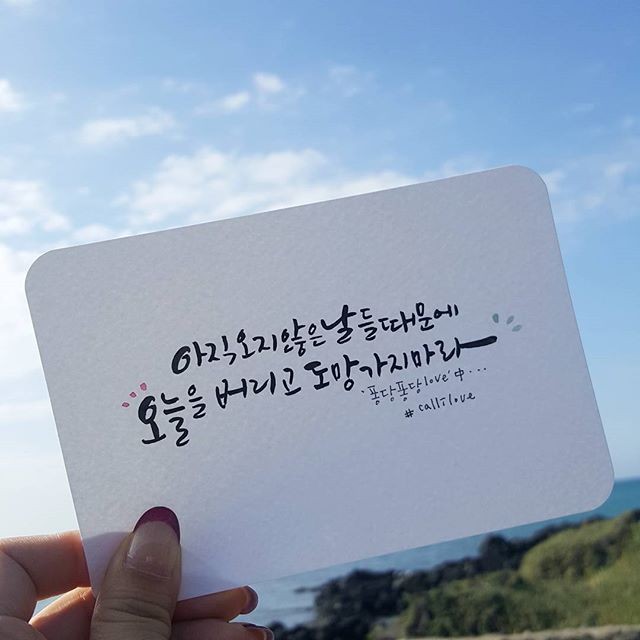 아직오지않은날들때문에
오늘을 버리고 도망가지마라
'퐁당퐁당love' 中...
#calli love